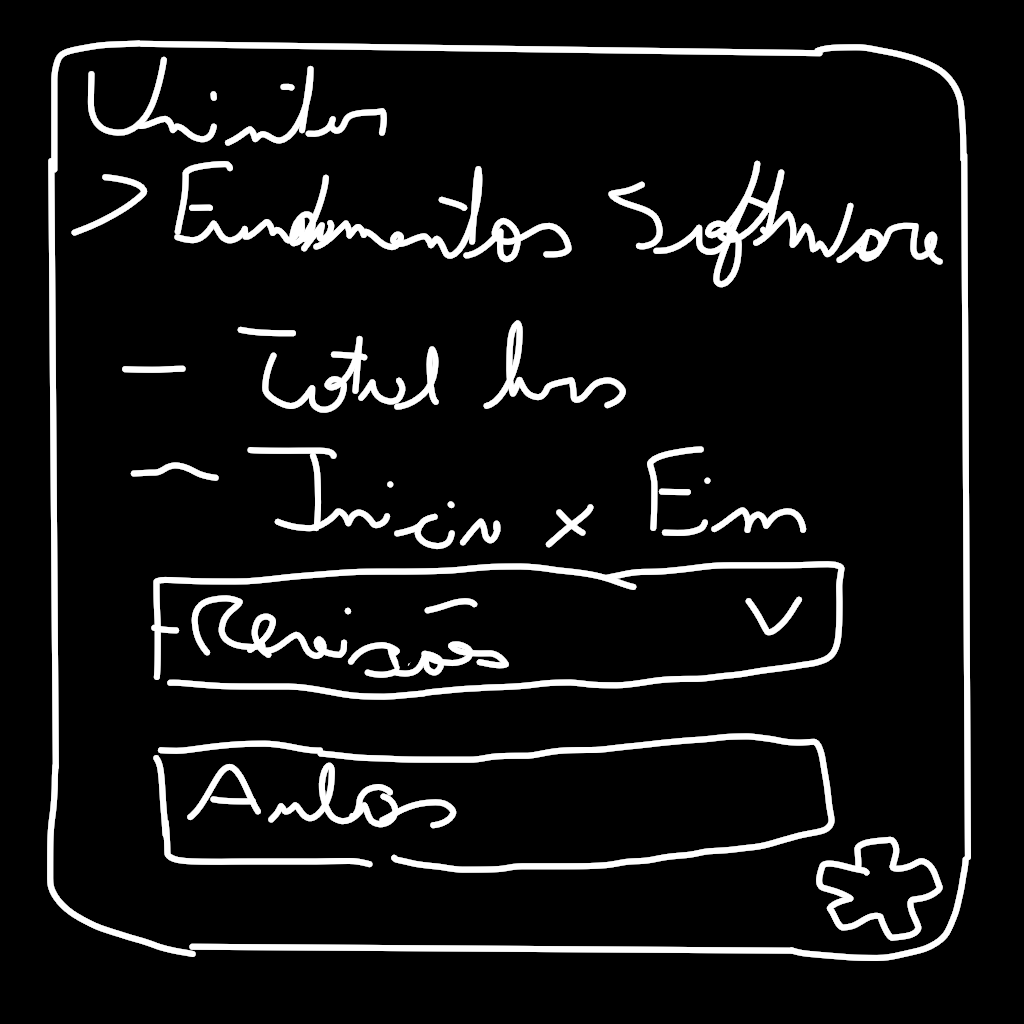 Uninter
> Fundamentos Software
- Total hrs
- Inicio x Fim
- Revisões
Aulas